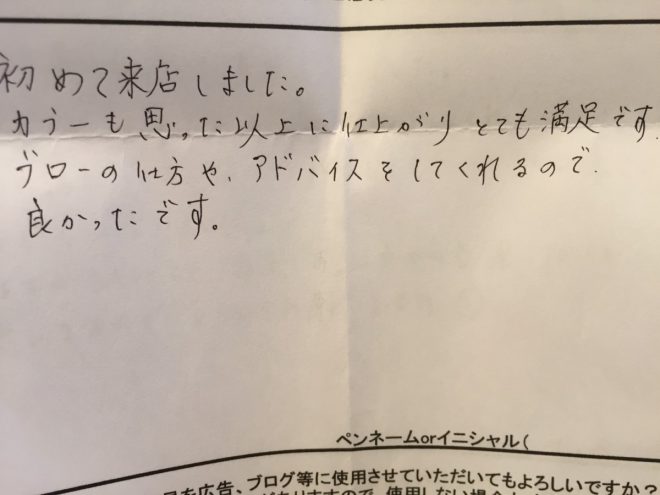 初めて来店しました。
カラーも思った以上に仕上がりとても満足です
ブローの仕方や、アドバイスをしてくれるので、
良かったです。
ペンネームorイニシャル（
を広告、ブログ等に使用させていただいてもよろしいですか？
ありますので、使用しない場合